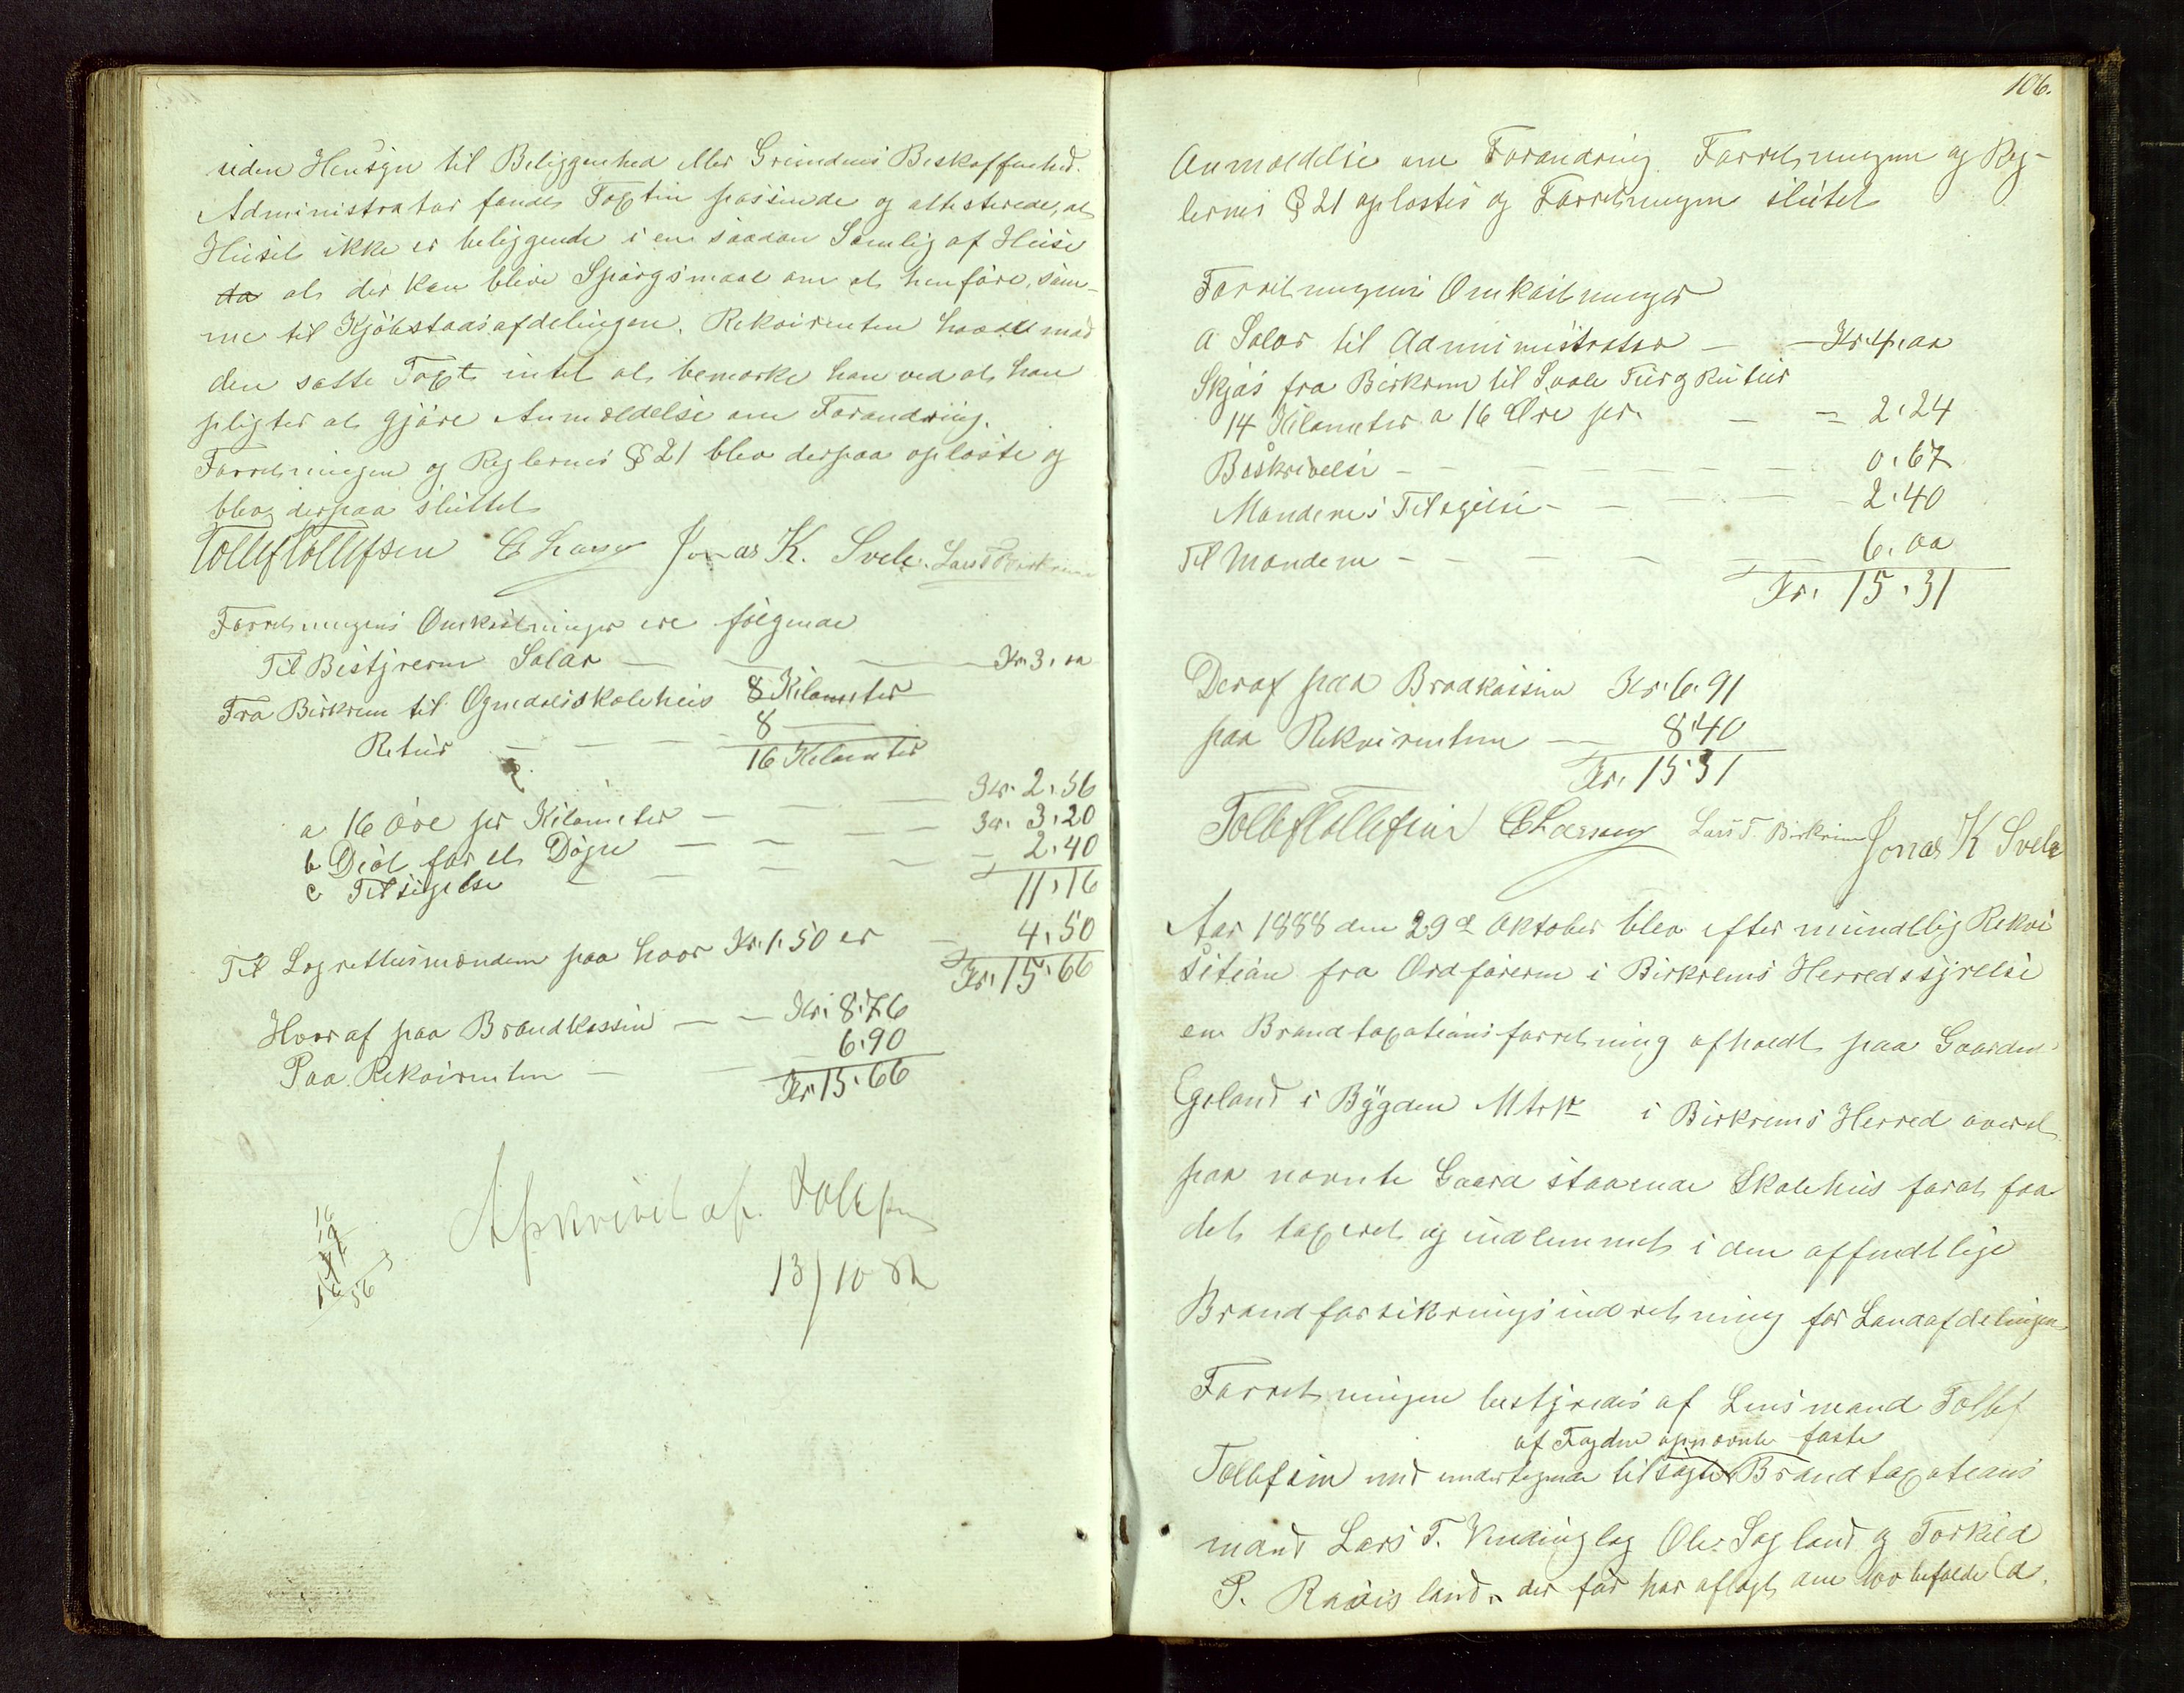 uden Hensyn til Beliggenhed eller Grundens Beskaffenhed.
Administrator fandt Taxten passende og attesterede, at
Huset ikke er beliggende i en saadan Samlig af Huse
da at der kan blive Spørgsmaal om at henføre, sam-
me til Kjøbstadsafdelingen. Rekvirenten havde mod
den satte Taxt intet at bemærke han ved at han
pligter at gjøre Anmeldelse om Forandring.
Forretningen og Reglernes § 21 blev derpaa oplæste og
blev derpaa sluttet
Tollef Tollefsen Jonas K. Svele. Lars T Birkrem
Forretningens Omkostninger ere følgende
Til Bestyreren Salær — — — Kr. 3. oo
Fra Birkrem til Ognedalsskolehus 8 Kilometer
Retur — — — 8 —
16 Kilometer
a 16 Øre pr Kilometer — — — Kr. 2.56
b Diæt for et Døgn — — — Kr. 3.20
c Tilsigelse — — — 2.40
11.16
Til Lagrettesmændene paa hver Kr. 1.50 er — 4.50
Kr. 15.66
Hvoraf paa Brandkassen — — Kr. 8.76
Paa Rekvirenten — — 6.90
Kr. 15.66
Afskrevet af. Tollefsen
13/10 88
106.
Anmeldelse om Forandring Forretningen og Reg-
lernes § 21 oplæstes og Forretningen sluttet
Forretningens Omkostninger
a Salær til Administrator — — Kr. 4. oo
Skyds fra Birkrem til Svele Tur og Retur
14 Kilometer a 16 Øre pr. — = 2.24
Beskrivelse — — — — — 0.67
Mændenes Tilsigelse — — — 2.40
Til Mændene — — — — 6. oo
Kr. 15.31
Deraf paa Bradkassen Kr. 6.91
paa Rekvirenten — 8.40
Kr. 15.31
Tollef Tollefsen Lars T. Birkrem Jonas K Svele
Aar 1888 den 29de Oktober blev efter mundtlig Rekvi
sition fra Ordføreren i Birkrems Herredsstyrelse
en Brandtaxationsforretning afholdt paa Gaarden
Egeland i Bygden Mtr№ i Birkrems Herred overet
paa nævnte Gaard staaende Skolehus forat faa
det taxeret og indlemmet i den offentlige
Brandforsikringsindretning for Landafdelingen
Forretningen bestyredes af Lensmand Tollef
af Fogden opnævnte faste
Tollefsen med undertegnede tilsagte Brandtaxations
mænd Lars T. Ole Sagland og Torkild
P. Ravsland, der før har aflagt den lovbefalede Ed.